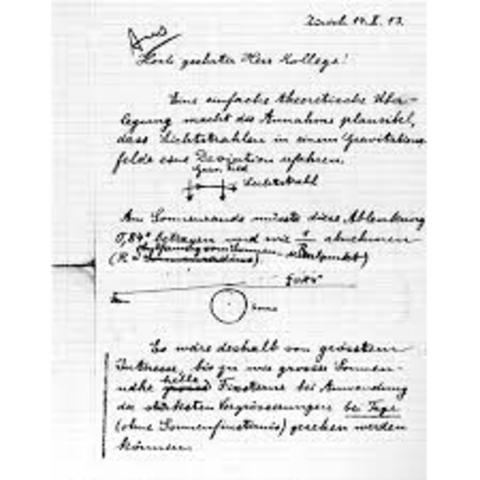 Zürich 14. X. 13.
Hoch geehrter Herr Kollege!
Eine einfache theoretische Über-
legung macht die Annahme plausibel,
dass Lichtstrahlen in einem Gravitations-
felde eine Deviation erfahren.
Grav. Feld
Lichtstrahl
Am Sonnenrande müsste diese Ablenkung
0,84" betragen und wie 1/R abnehmen
(R =
Sonne
Es wäre deshalb von grösstem
Interesse, bis zu wie grosser Sonnen-
nähe helle Fixsterne bei Anwendung
der stärksten Vergrösserungen bei Tage
(ohne Sonnenfinsternis) gesehen werden
können.